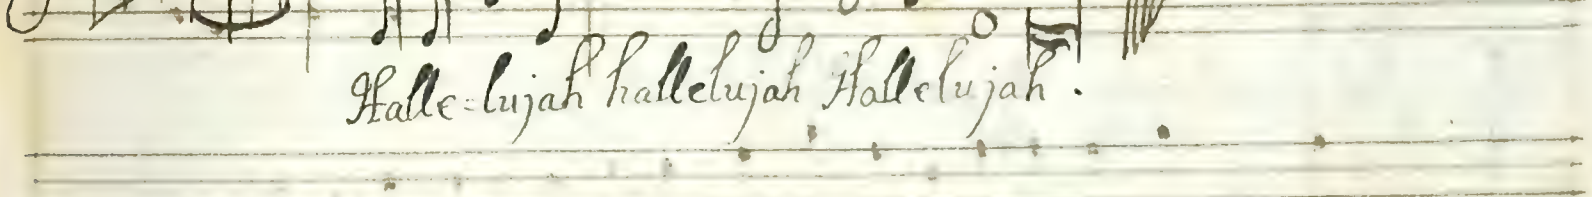 Halle=lujah hallelujah Hallelujah.